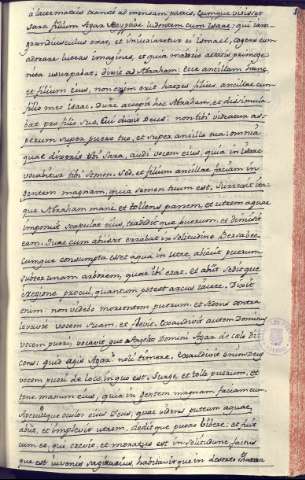 á lacte matris transit ad mensam patris. Cumque vidisset
Sara filium Agar Aegyptiae ludentem cum Isaac; qui iam
grandiusculus erat, et inimicaretur ei Ismael, agens eum
adorare luteas imagines, et quia maioris aetatis primoge-
nita usurpabat, dixit ad Abraham: Eice ancillam hanc
et filium eius, non enim erit haeres filius ancillae cum
filio meo Isaac. Dure accepit hoc Abraham, et dissimula-
bat pro filio suo, Cui dixit Deus: non tibi videatur as-
perum super puero tuo, et super ancilla tua: omnia
quae dixerit tibi Sara, audi vocem eius, quia in Isaac
vocabitur tibi semen. Sed, et filium ancillae faciam in
gentem magnam, quia semen tuum est. Surrexit ita-
que Abraham mane, et tollens panem, et utrem aquae
imposuit scapulae eius, tradiditque puerum, et demisit
eam. Quae cum abiisset errabat in solitudine Bersabee
cumque consumpta esset aqua in utre, abiecit puerum
subter unam arborem, quae ibi erat, et abiit seditque
é regione procul, quantum potest arcus iacere. Dixit
enim: non videbo morientem puerum, et sedens contra
levavit vocem suam, et flevit, exaudivit autem Dominus
vocem pueri, vocavitque Angelus Domini Agar de celo di-
cens: quid agis Agar? noli timere, exaudivit enim Deus
vocem pueri de loco in quo est. Surge, et tolle puerum, et
tene manum eius, quia in gentem magnam faciam eum.
Aperuitque oculos eius Deus, quae videns puteum aquae,
abiit, et implevit utrem, deditque puero bibere; et fuit
cum eo, qui crevit, et moratus est in solitudine factus-
que est iuvenis sagittarius, habitavitque in deserto Pharan